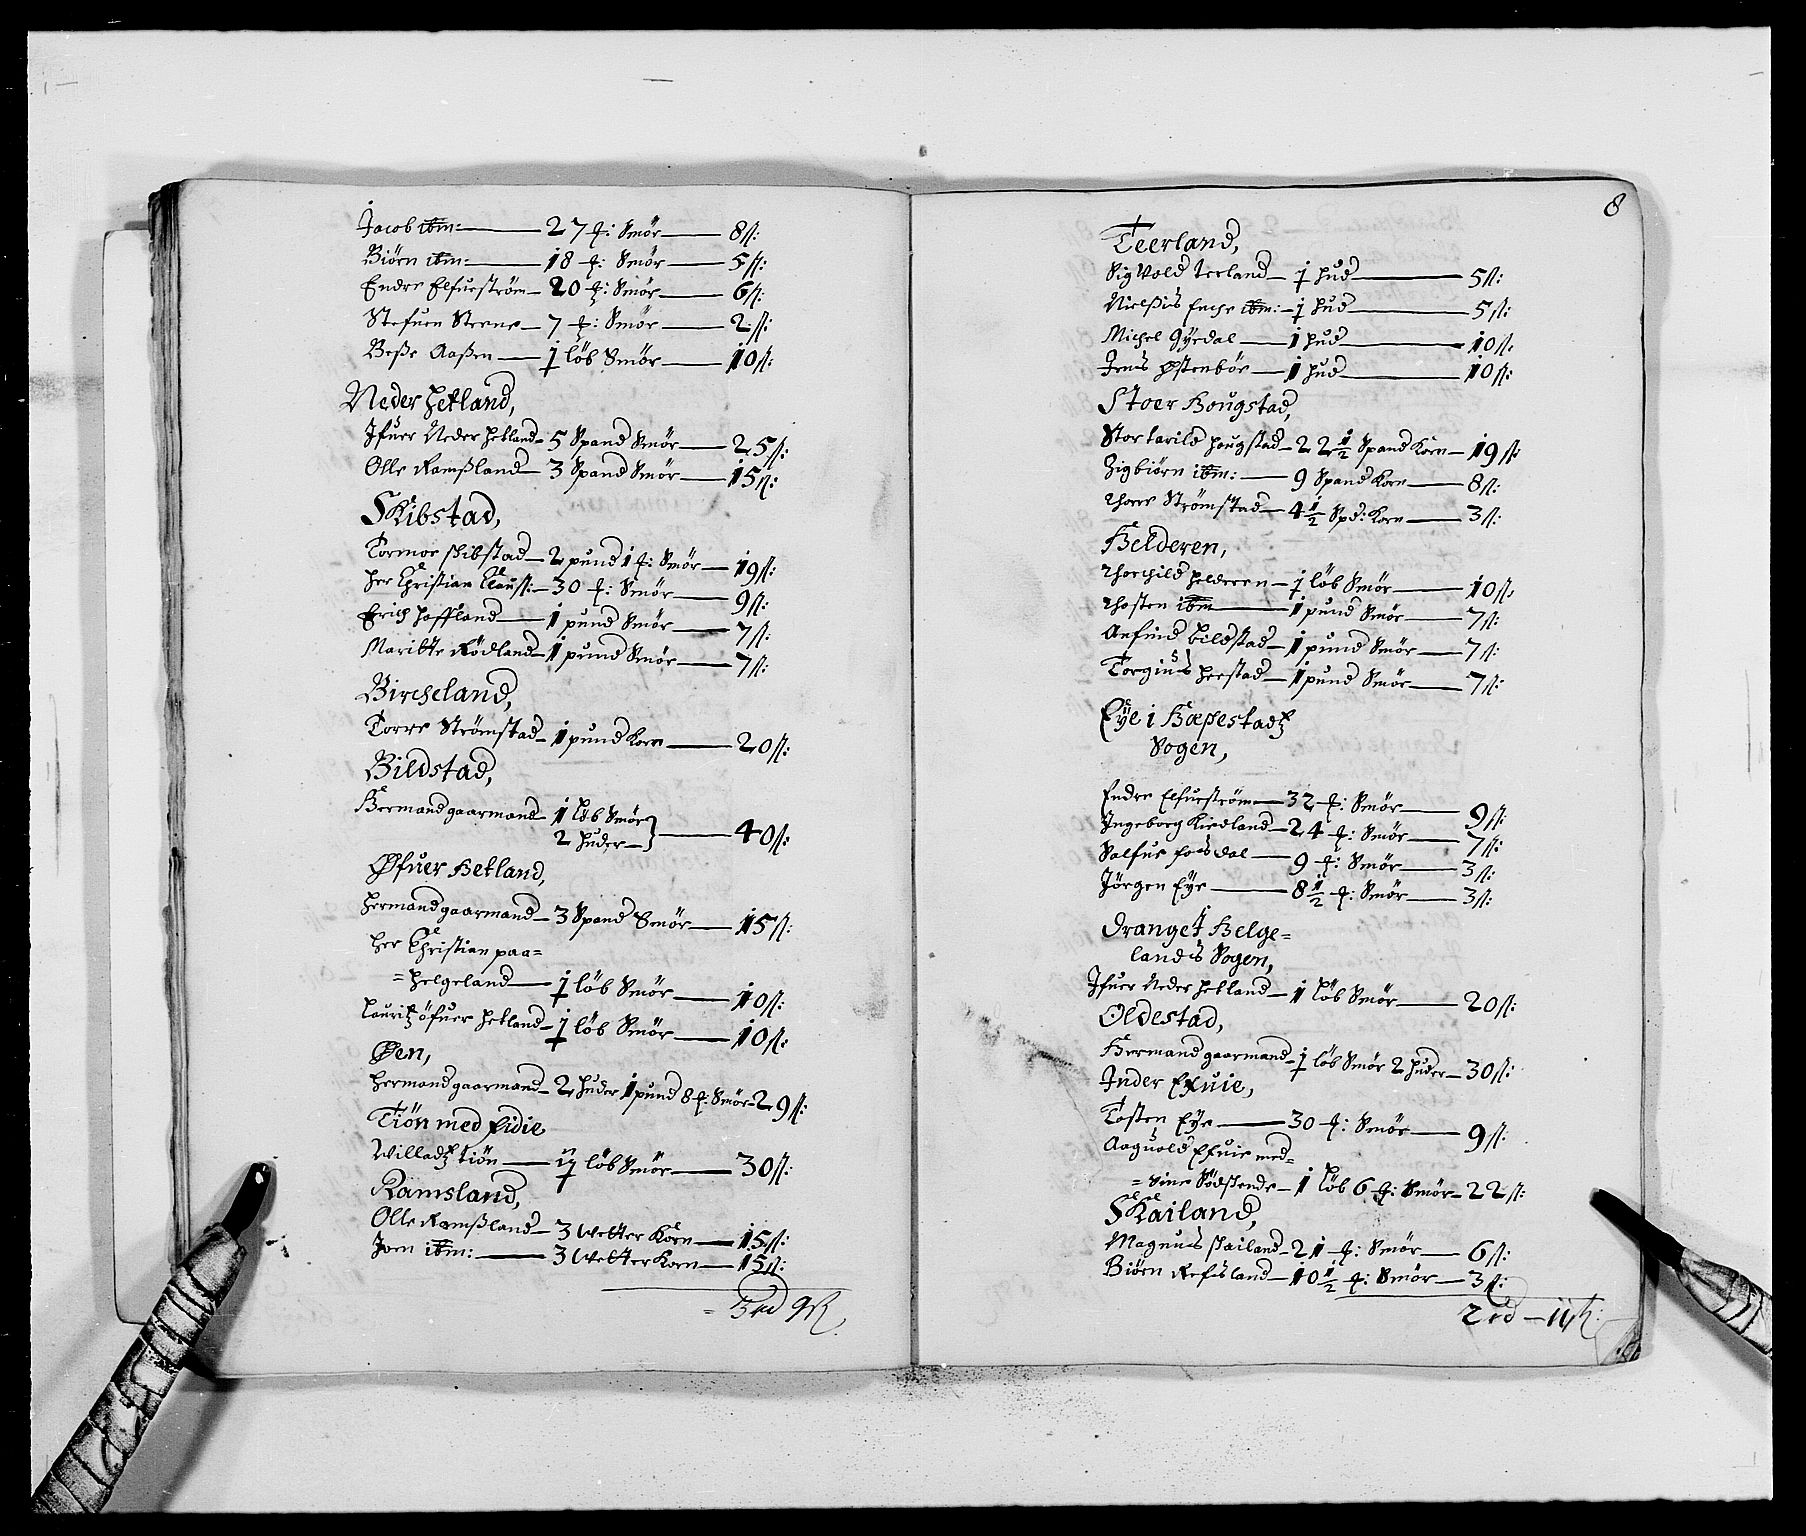 Jacob ibm: — 27 ℔: Smör — 8 ß:
Biörn ibm: — 18 ℔: Smör — 5 ß:
Endre Elfueström — 20 ℔: Smör — 6 ß:
Stefuen Steene — 7 ℔: Smör — 2 ß:
Beße Aaßen — ½ löb Smör — 10 ß:
Neder Hetland,
Jfuer Neder Hetland — 5 Spand Smör — 25 ß:
Olle Ramßland — 3 Spand Smör — 15 ß:
Skibstad,
Tormoe skibstad — 2 pund 1 ℔: Smör — 19 ß:
her Christian Clauss: — 30 ℔: Smör — 9 ß:
Erich Hoffland — 1 pund Smör — 7 ß:
Maritte Rödland — 1 pund Smör — 7 ß:
Bircheland,
Torre Strömstad — 1 pund Korn — 20 ß:
Bildstad,
Hermand gaarmand — 1 löb Smör
2 huder — } — 40 ß:
Øfuer Hetland,
Hermand gaarmand — 3 Spand Smör — 15 ß:
her Christian paa=
=helgeland — ½ löb Smör — 10 ß:
Lauritz öfuer Hetland — ½ löb Smör — 10 ß:
Øen,
Hermand gaarmand — 2 huder 1 pund 8 ℔: Smör — 29 ß:
Tiön med Eidie
Willadtz tiön — 1½ löb Smör — 30 ß:
Ramsland,
Olle Ramßland — 3 Wetter Korn — 15 ß:
Joen ibm: — 3 Wetter Korn — 15 ß:
= 3 rd 9 ß
8
Teerland,
Sigvold terland — ½ hud — 5 ß:
Nielßis Enche ibm: — ½ hud — 5 ß:
Michel Gyedal — 1 hud — 10 ß:
Jens Østenbör — 1 hud — 10 ß:
Stoer Hougstad,
Stor tarild hougstad — 22½ Spand Korn — 19 ß:
Sigbiörn ibm: — 9 Spand Korn — 8 ß:
Thore Strömstad — 4½ Spd: Korn — 3 ß:
Helderen,
Thorchild helderen — ½ löb Smör — 10 ß:
Thosten ibm — 1 pund Smör — 7 ß:
Anfind bildstad — 1 pund Smör — 7 ß:
Torgius heestad — 1 pund Smör — 7 ß:
Eye i Hæpestadtz
Sogen,
Endre Elfueström — 32 ℔: Smör — 9 ß:
Jngeborg Kirdland — 24 ℔: Smör — 7 ß:
Salfue fosdal — 9 ℔: Smör — 3 ß:
Jörgen Eye — 8½ ℔: Smör — 3 ß:
Dranget Helge=
lands Sogen,
Jfuer Neder Hetland — 1 Löb Smör — 20 ß:
Oldestad,
Hermand gaarmand — ½ löb Smör 2 huder — 30 ß:
Jnder Efuie,
Tosten Eye — 30 ℔: Smör — 9 ß:
Aaguold Efuie med=
=sine Södskende — 1 Löb 6 ℔: Smör — 22 ß:
Skailand,
Magnus skailand — 21 ℔: Smör — 6 ß:
Biörn Refsland — 10½ ℔: Smör — 3 ß:
2 rd — 11 ß: